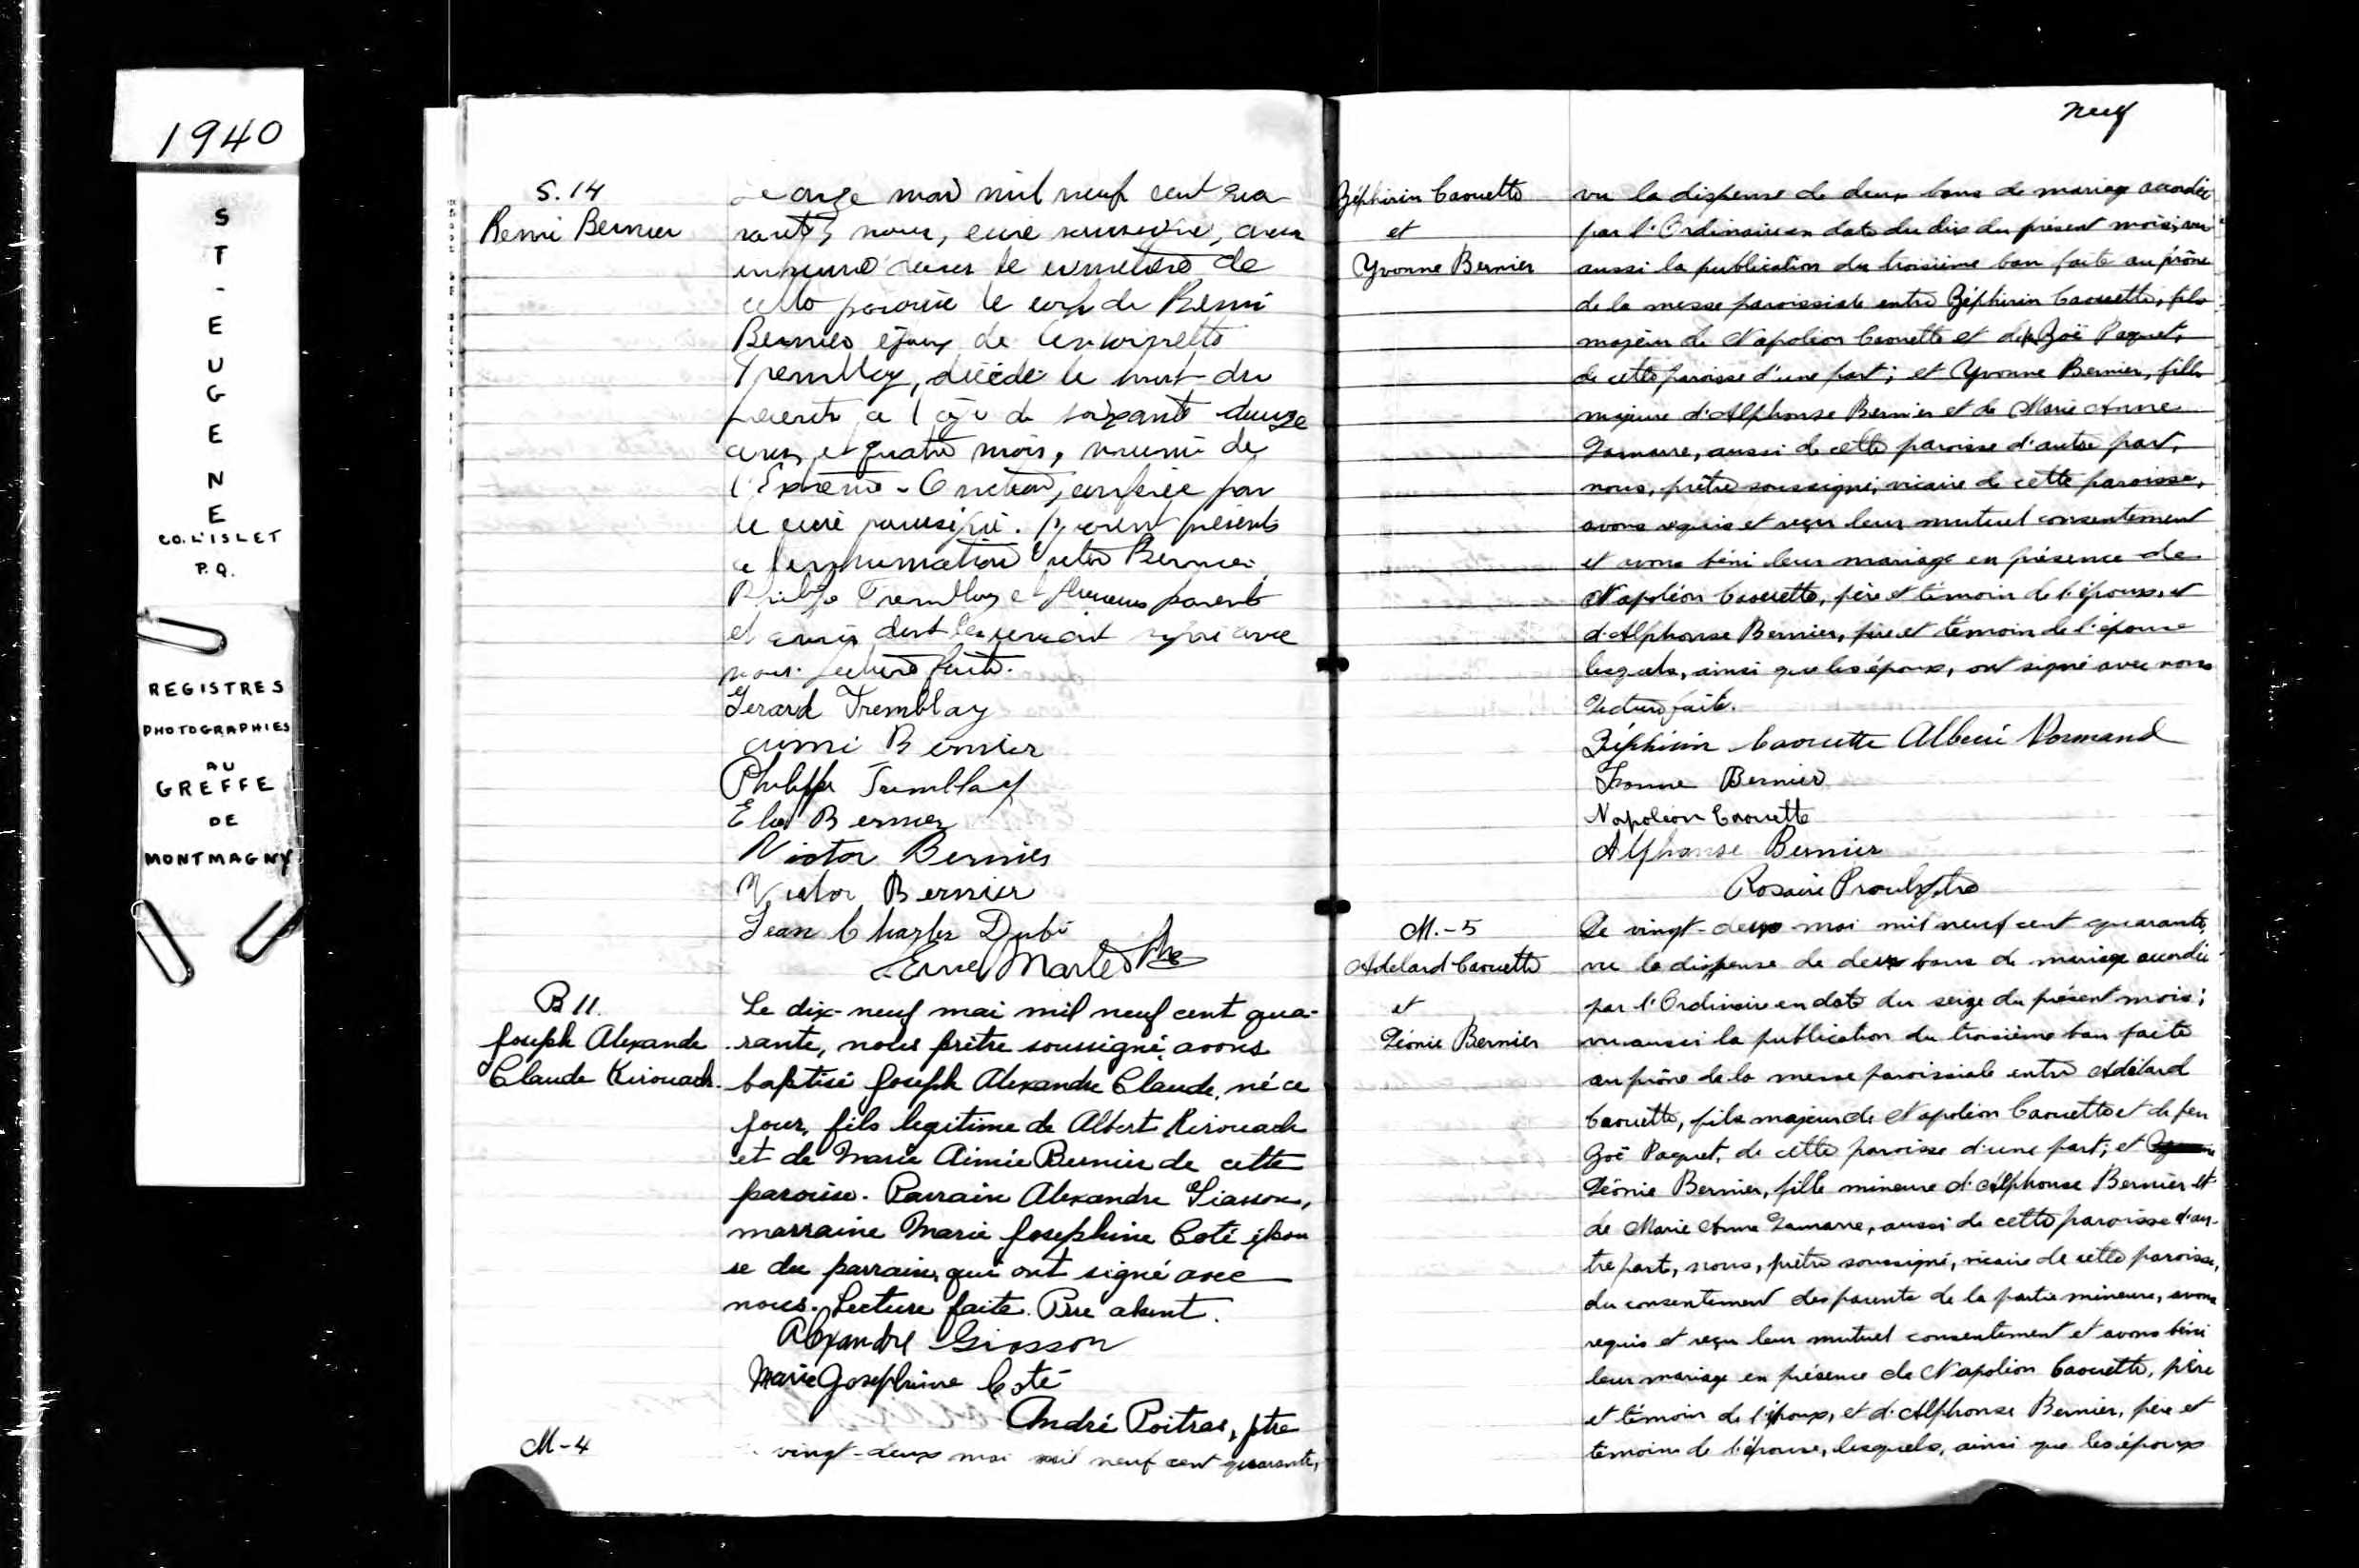 1940
ST-EUGENE
CO. L'ISLET
P.Q.
REGISTRES
PHOTOGRAPHIES
AU
GREFFE
DE
MONTMAGNY
S. 14
Remi Bernier
Le onze mai mil neuf cent qua
rante, nous, curé soussigné, avons
inhumé dans le cimetière de
cette paroisse le corps de Remi
Bernier époux de
Tremblay, décédé le huit du
présent a l'âge de soixante douze
ans et quatre mois, muni de
l'Extrême-Onction, conférée par
le curé soussigné. Furent présents
a l'inhumation Victor Bernier,
Philippe Tremblay et plusieurs parents
et amis dont les uns ont signé avec
nous. Lecture faite.
Gerard Tremblay
Aimé Bernier
Philippe Tremblay
Bernier
Victor Bernier
Victor Bernier
Jean Charles Dubé
Ptre
B 11.
Joseph Alexandre
Claude Kirouack.
Le dix-neuf mai mil neuf cent qua-
rante, nous prêtre soussigné avons
baptisé Joseph Alexandre Claude, né ce
jour, fils legitime de Albert Kirouack
et de Marie Aimée Bernier de cette
paroisse. Parrain Alexandre Giasson,
marraine Marie Josephine Coté épou
se du parrain, qui ont signé avec
nous. Lecture faite. Père absent.
Alexandre Giasson
Marie Josephine Coté
André Poitras, ptre
M-4
vingt-deux mai mil neuf cent quarante,
neuf
Zéphirin Caouette
et
Yvonne Bernier
vu la dispense de deux bans de mariage accordée
par l'Ordinaire en date du dix du présent mois; vu
aussi la publication du troisième ban faite au prône
de la messe paroissiale entre Zéphirin Caouette, fils
majeur de Napoléon Caouette et de Zoë Paquet,
de cette paroisse d'une part; et Yvonne Bernier, fille
majeure d'Alphonse Bernier et de Marie Anne
Lamarre, aussi de cette paroisse d'autre part,
nous, prêtre soussigné, vicaire de cette paroisse,
avons requis et reçu leur mutuel consentement
et avons béni leur mariage en présence de
Napoléon Caouette, père et témoin de l'époux, et
d'Alphonse Bernier, père et témoin de l'épouse
lesquels, ainsi que les époux, ont signé avec nous
Lecture faite.
Zéphirin Caouette Normand
Yvonne Bernier
Napoléon Caouette
Alphonse Bernier
Rosaire Proulx ptre
M.-5
Adelard Caouette
et
Léonie Bernier
Le vingt-deux mai mil neuf cent quarante,
vu la dispense de deux bans de mariage accordée
par l'Ordinaire en date du seize du présent mois;
vu aussi la publication du troisième ban faite
au prône de la messe paroissiale entre Adélard
Caouette, fils majeur de Napoléon Caouette et de feu
Zoë Paquet, de cette paroisse d'une part; et
Léonie Bernier, fille mineure d'Alphonse Bernier et
de Marie Anne Lamarre, aussi de cette paroisse d'au-
tre part, nous, prêtre soussigné, vicaire de cette paroisse,
du consentement des parents de la partie mineure, avons
requis et reçu leur mutuel consentement et avons béni
leur mariage en présence de Napoléon Caouette, père
et témoin de l'époux, et d'Alphonse Bernier, père et
témoin de l'épouse, lesquels, ainsi que les époux